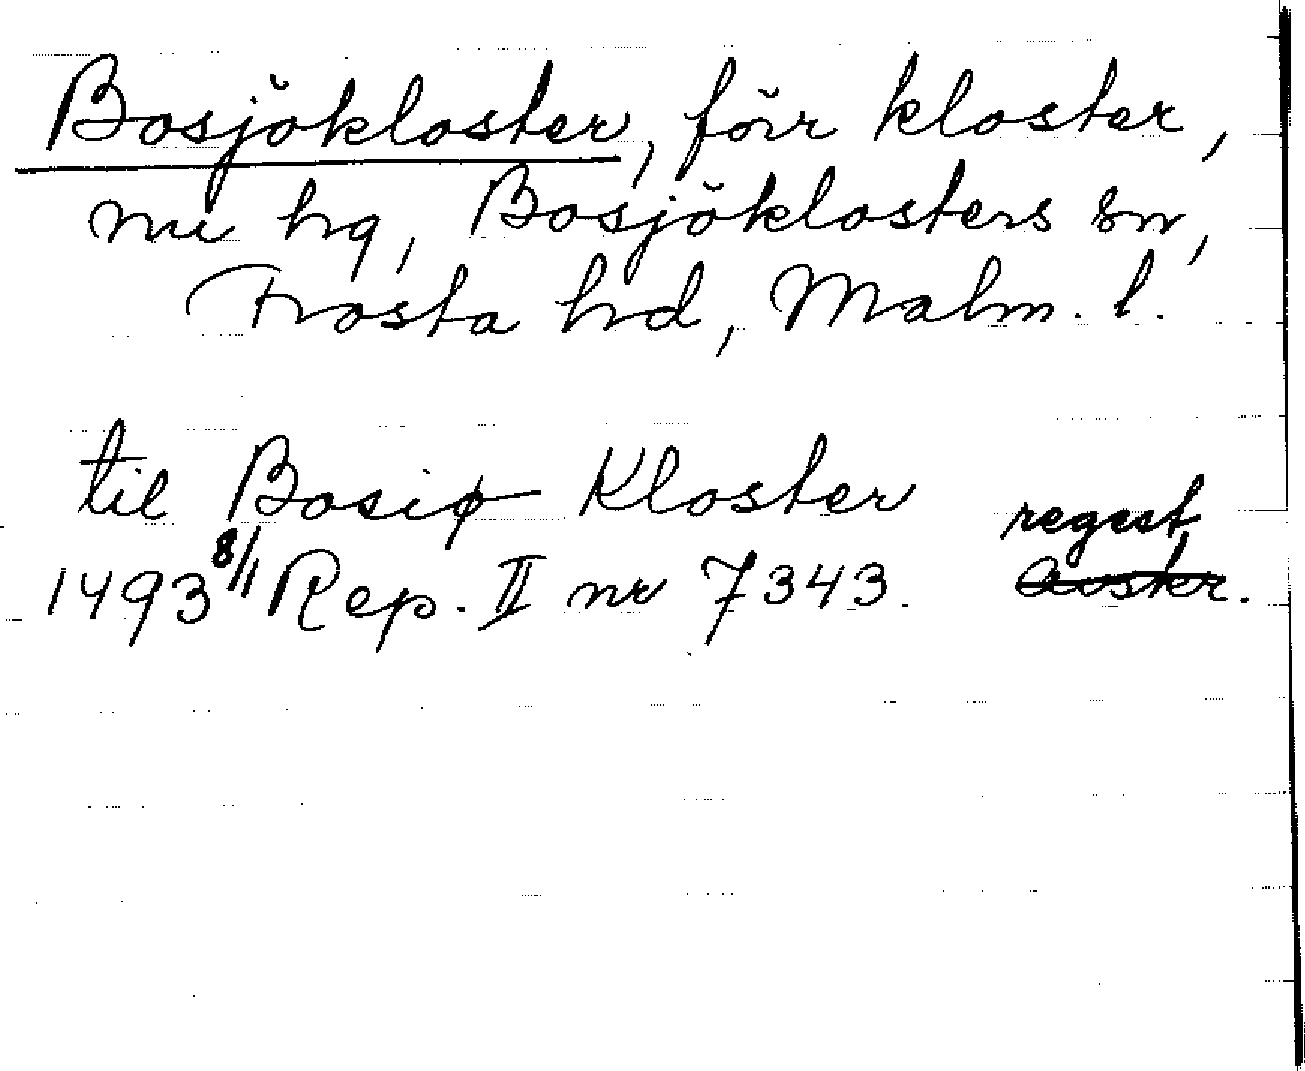 Bosjökloster, förr kloster,
nu hg, Bosjöklosters sn,
Frosta hd, Malm. l.
til Bosiø Kloster
regest
1493 8/1 Rep. II nr 7343. Avskr.